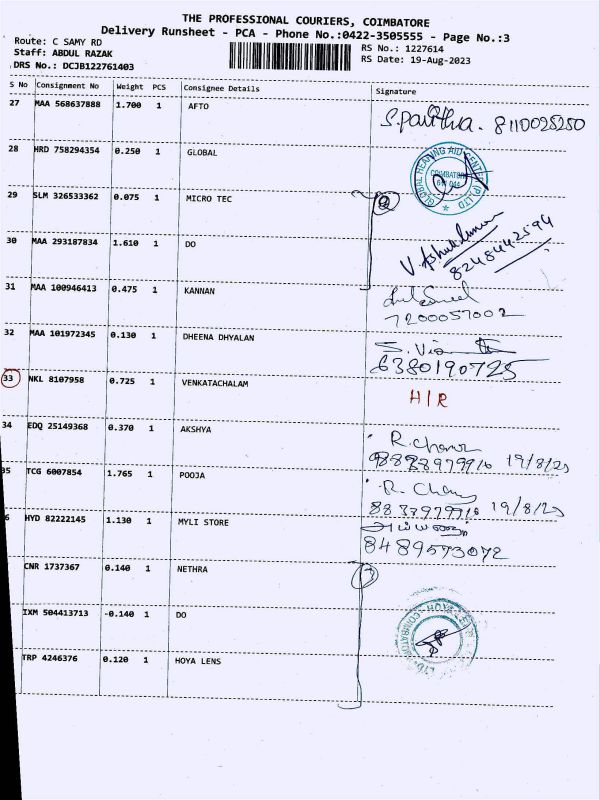 THE PROFESSIONAL COURIERS, COIMBATORE
Delivery Runsheet - PCA - Phone No.:0422-3505555 - Page No.:3
Route: C SAMY RD
Staff: ABDUL RAZAK
DRS No.: DCJB122761403
RS No.: 1227614
RS Date: 19-Aug-2023
S No Consignment No Weight PCS Consignee Details Signature
27 MAA 568637888 1.700 1 AFTO
8110025250
28 HRD 758294354 0.250 1 GLOBAL
GLOBAL HEARING AID CENTRE (P) LTD
COIMBATORE
641 044
29 SLM 326533362 0.075 1 MICRO TEC
30 MAA 293187834 1.610 1 DO
8248442594
31 MAA 100946413 0.475 1 KANNAN
7200057002
32 MAA 101972345 0.130 1 DHEENA DHYALAN
6380190725
33 NKL 8107958 0.725 1 VENKATACHALAM H/R
34 EDQ 25149368 0.370 1 AKSHYA
19/8/23
35 TCG 6007854 1.765 1 POOJA
R. Chan
19/8/23
6 HYD 82222145 1.130 1 MYLI STORE
8489573072
CNR 1737367 0.140 1 NETHRA
IXM 504413713 -0.140 1 DO
TRP 4246376 0.120 1 HOYA LENS